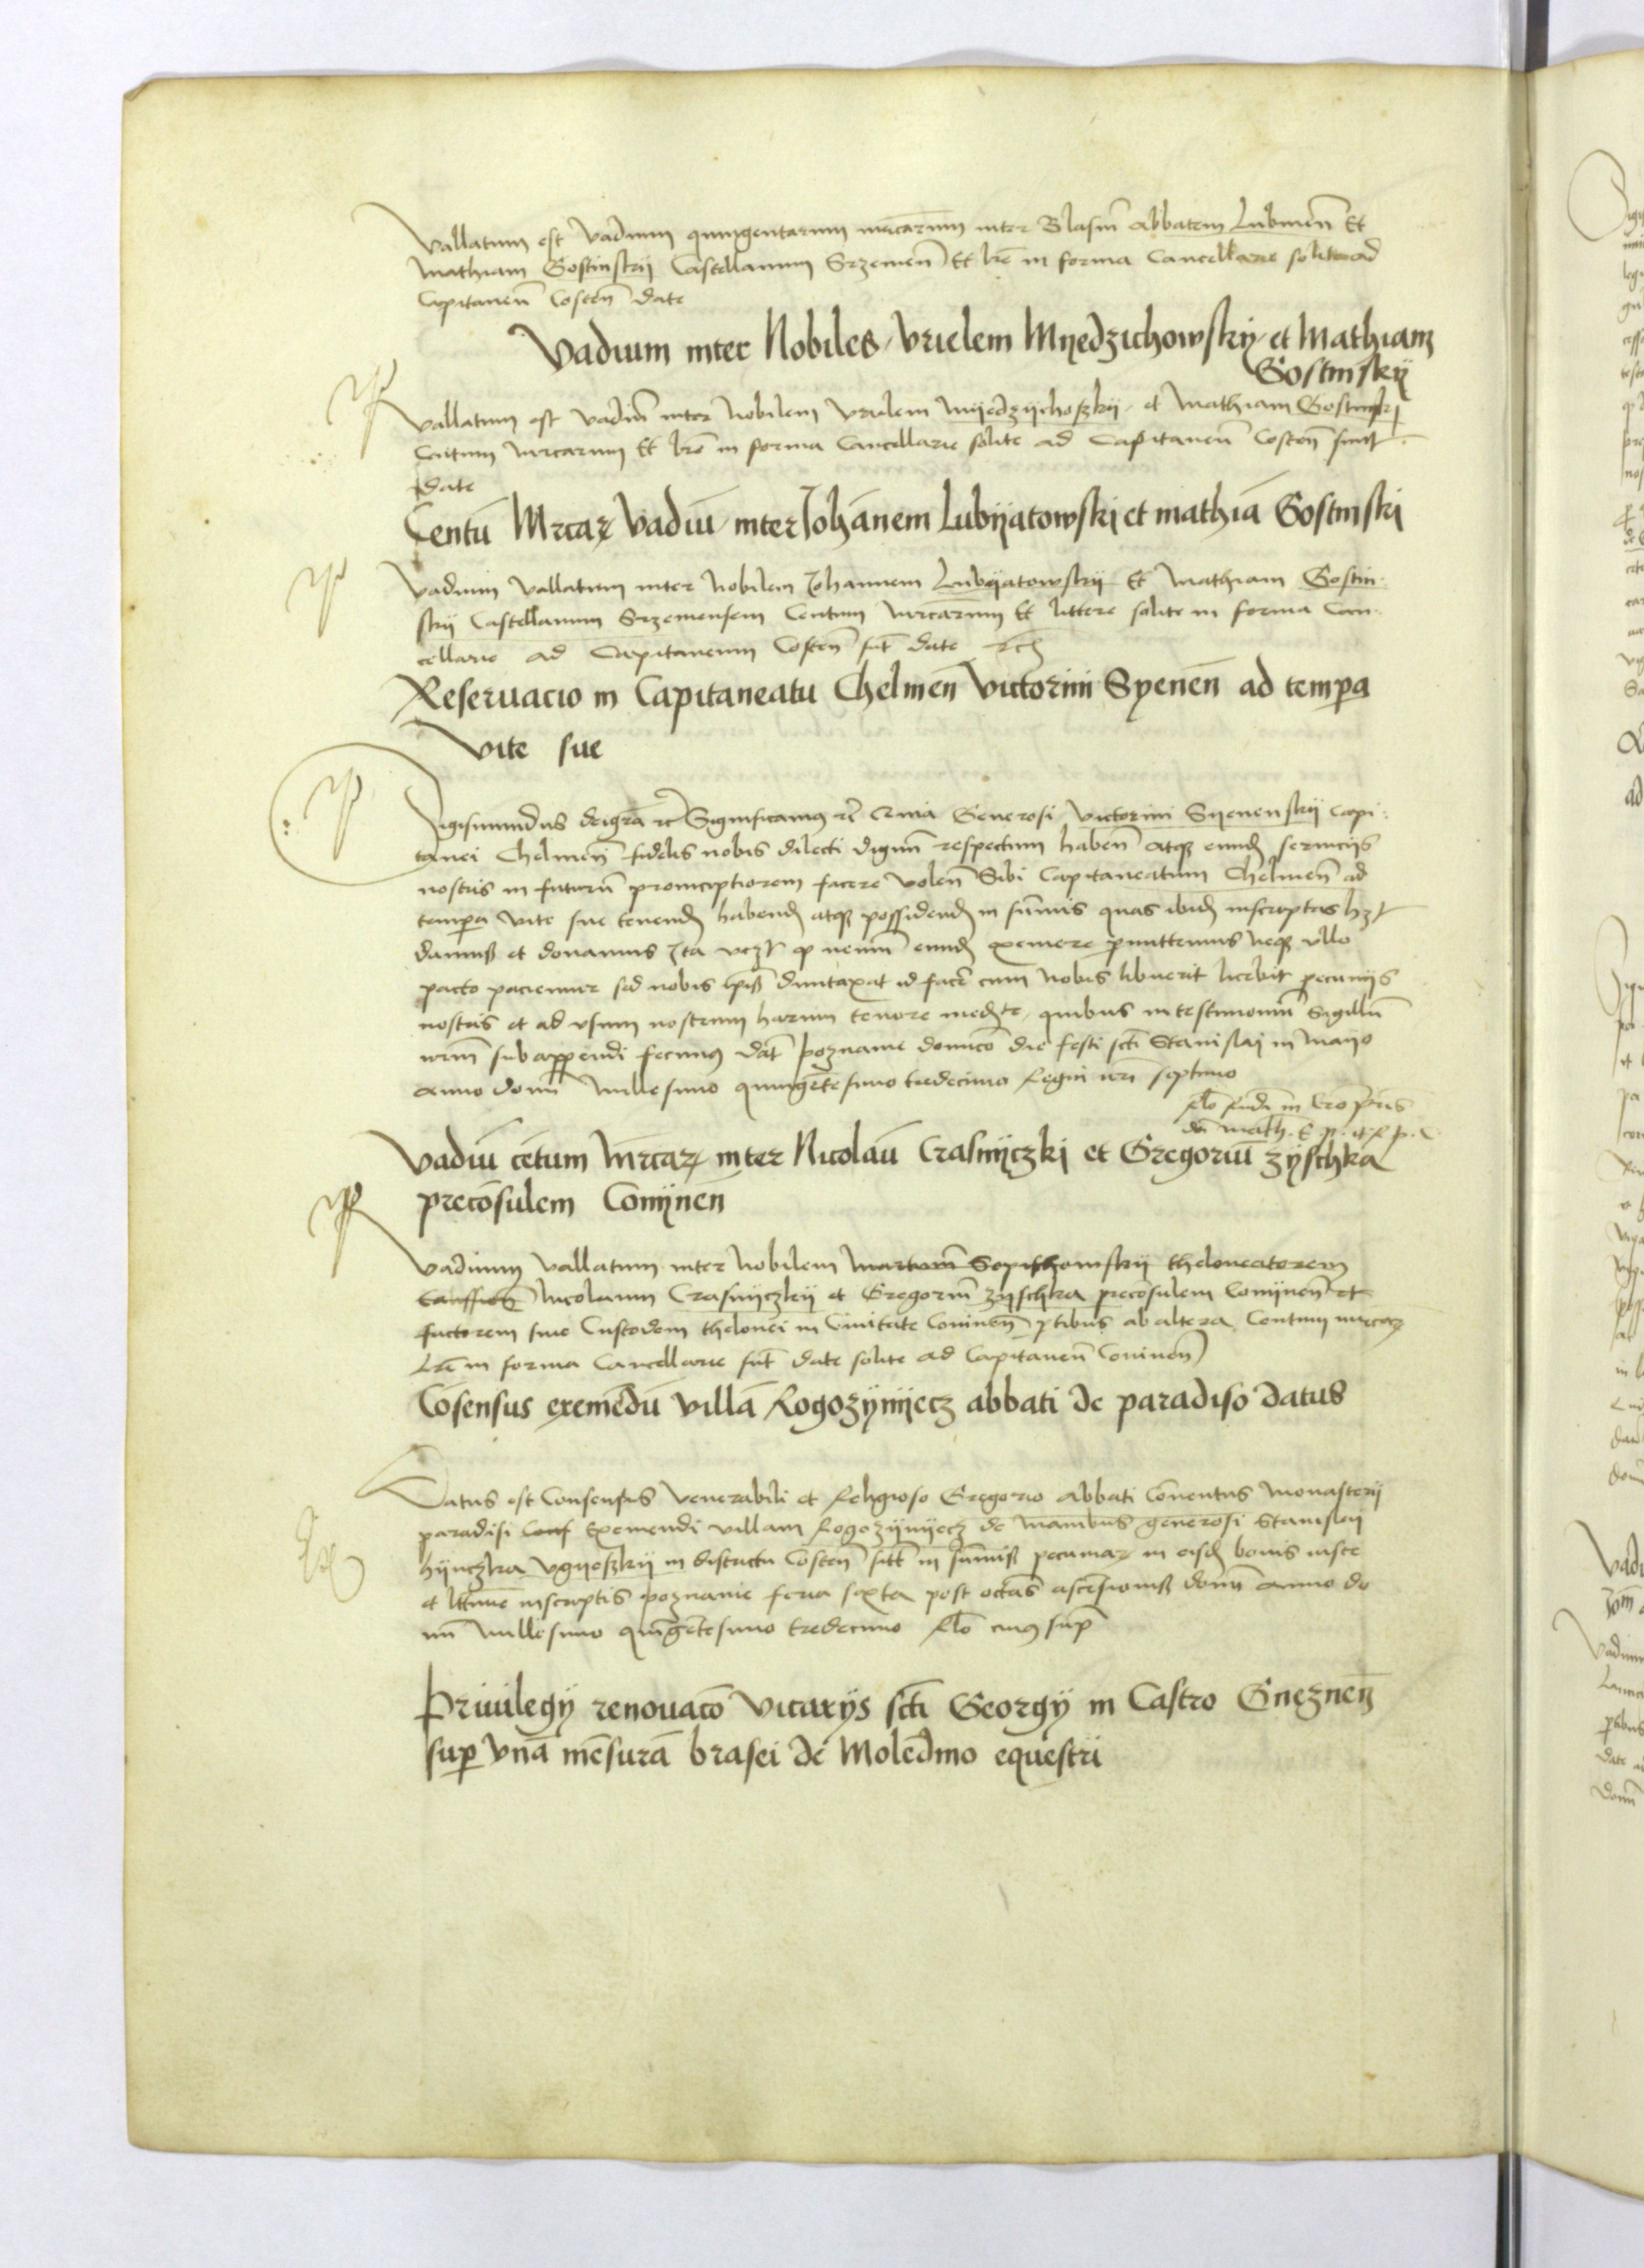 Vallatum est Vadium quingentarum mrcarum inter Blasiu͞ Abbatem Lubinen͞ Et
Mathiam Gostinskij Castellanum Srzemen͞ Et lr͞e in forma Cancellarie solite ad
Capitaneu͞ Costen͞ date
Vadium inter Nobiles Vrielem Mÿedzichowskÿ et Mathiam
Gostinskÿ
Vallatum est Vadiu͞ inter Nobilem Vrielem Mÿedzÿchoszkÿ et Mathiam Gostinskj
Centum mrcarum Et lr͞e in forma Cancellarie solite ad Capitaneu͞ Costen͞ sunt
date
Centu͞ Mrcaꝝ Vadiu͞ inter Joha͞nem Lubÿatowskj et mathia͞ Gostinskj
Vadium Vallatum inter Nobilem Johannem Lubÿatowskÿ Et Mathiam Gostin
skÿ Castellanum Srzemensem Centum mrcarum Et littere solite in forma Can
cellarie ad Capitaneum Costen͞ su͞t date
Reseruacio in Capitaneatu Chelmen͞ Victorini Syenen͞ ad temꝑa
Vite sue
Sigismundus dei gr͞a Significamꝰ Generosi Victorini Sÿenenskÿ Capi
tanei Chelmen͞ fidelis nobis dilecti dignu͞ respectum haben͞ atqꝫ eund͞ seruicijs
nostris in futuru͞ promciptiorem facere Volen͞ Sibi Capitaneatum Chelmen͞ ad
temꝑa Vite sue tenend͞ habend͞ atqꝫ possidend͞ in su͞mis quas ibid͞ inscriptas hꝫ
damus et donamus Ita ꝙ nemini eund͞ exemere ꝑmittemus neqꝫ vllo
pacto paciemur sed nobis ip͞is duntaxat id fac͞e cum nobis libuerit licebit pecunijs
nostris et ad vsum nostrum harum tenore med͞te, quibus in testimoniu͞ Sigillu͞
nr͞m subappendi fecimꝰ Dat͞ poznanie do͞nico die festi sct͞i Stanislaj in Mayo
Anno dom͞i Millesimo quinge͞tesimo tredecimo Regni nr͞i septimo
Vadiu͞ ce͞tum Mrcaꝝ inter Nicolau͞ Crasnÿczkj et Gregoriu͞ zÿschka
preco͞sulem Conÿnen͞
Vadium Vallatum inter Nobilem Martinu͞ Sopithowskÿ theloneatorem
Nicolaum Crasnÿczkÿ et Gregoriu͞ zyschka preco͞sulem Conÿnen͞ et
factorem siue Custodem thelonei in Ciuitate Coninen͞ ꝑtibus ab altera Centum mrcaꝝ
Lr͞e in forma Cancellarie su͞t date solite ad Capitaneu͞ Coninen͞
Co͞sensus exeme͞du͞ Villa͞ Rogozÿnÿecz abbati de paradiso datus
Datus est Consensus Venerabili et Religioso Gregorio Abbati Conentus Monasterij
paradisi Conf Exemendi villam Rogozÿnÿecz de manibus generosi Stanislaj
hÿnczka Vgÿeszkÿ in districtu Costen͞ in su͞mis pecuniaꝝ in eisd͞ bonis iuste
et l͞tt͞ime inscriptis poznanie feria sexta post octa͞s asce͞sionis dom͞i Anno do
mi͞ Millesimo qui͞ge͞tesimo tredecimo Rl͞o cuiꝰ sup͞
Priuilegÿ renouaco͞ Vicarÿs sct͞i Georgÿ in Castro Gneznen͞
suꝑ Vna͞ me͞sura͞ brasei de Mole͞dino equestri